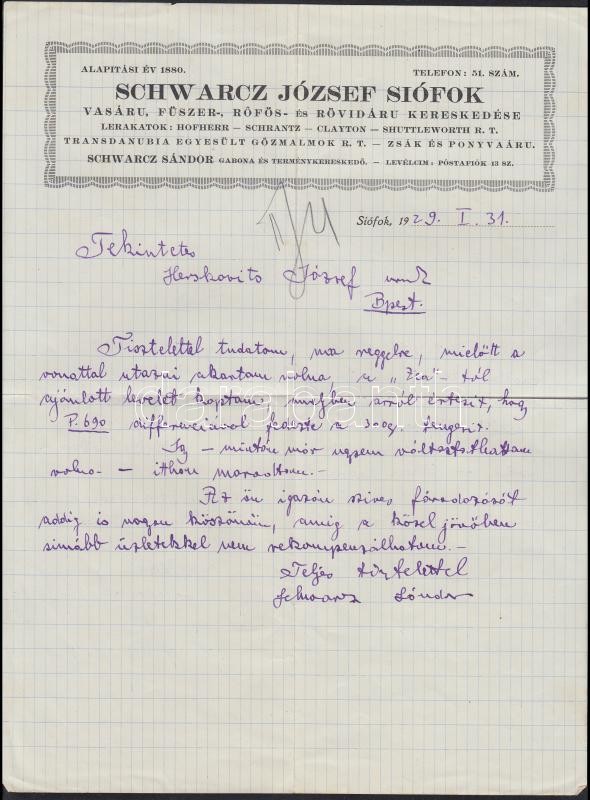 ALAPITÁSI ÉV 1880. TELEFON: 51. SZÁM.
SCHWARCZ JÓZSEF SIÓFOK
VASÁRU, FÜSZER-, RÖFÖS- ÉS RÖVIDÁRU KERESKEDÉSE
LERAKATOK: HOFHERR — SCHRANTZ — CLAYTON — SHUTTLEWORTH R. T.
TRANSDANUBIA EGYESÜLT GÖZMALMOK R. T. — ZSÁK ÉS PONYVAÁRU.
SCHWARCZ SÁNDOR GABONA ÉS TERMÉNYKERESKEDŐ. — LEVÉLCIM: PÓSTAFIÓK 13 SZ.
Siófok, 1929. I. 31.
Tekintetes
Herskovits József
Bpest.
Tisztelettel tudatom, ma reggelre, mielőtt a
vonattal utazni akartam volna, a
ajánlott levelet kaptam, melyben arról értesit, hogy
P. 690 differenciával fedezte a
Így – miután már ugysem változtathattam
volna – ithon maradtam. –
Az ön igazán szives fáradozását
addig is nagyon köszönöm, amig a közel jövőben
simább üzletekkel nem rekompenzálhatom. –
Teljes tisztelettel
Schwarcz Sándor